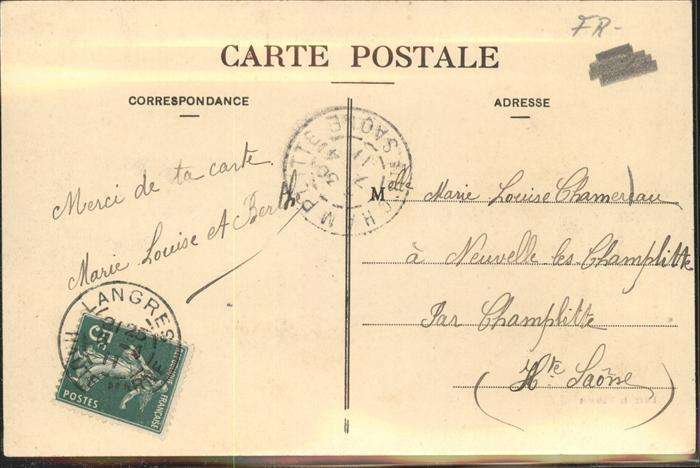 FR-
CARTE POSTALE
CORRESPONDANCE
ADRESSE
Merci de ta carte.
Marie Louise et Berthe
Melle Marie Louise Chamereau
à Neuvelle les Champlitte
Par Champlitte
(Hte Saône)
CHAMPLITTE
Hte SAONE
7
11
LANGRES
Hte MARNE
5c
POSTES
FRANÇAISE